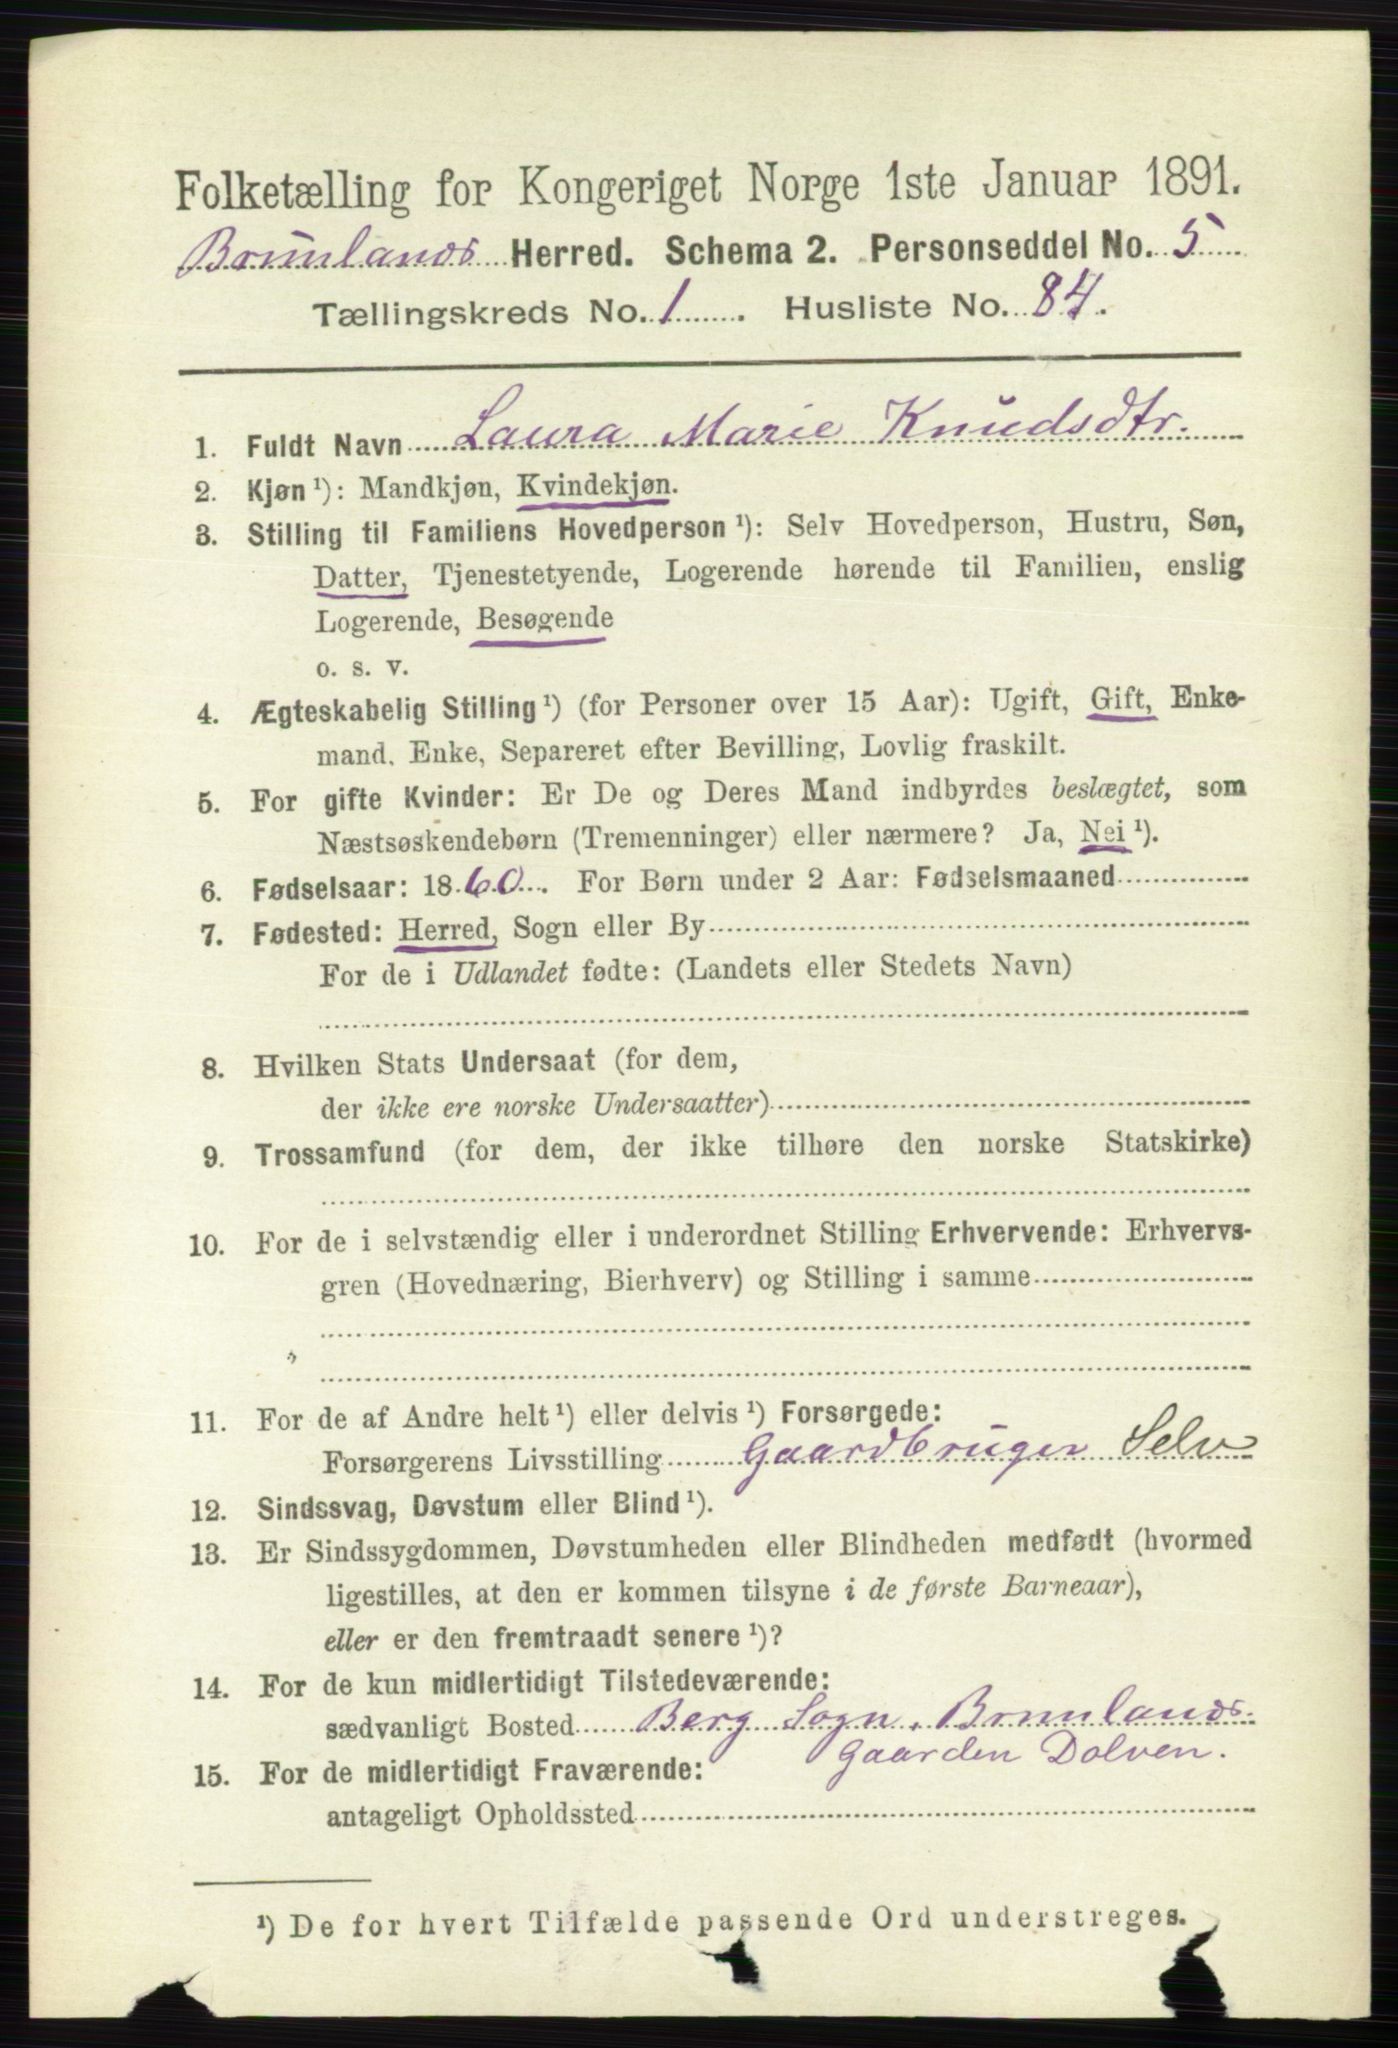 Folketælling for Kongeriget Norge 1ste Januar 1891.
Brunlanæs Herred. Schema 2. Personseddel No. 5
Tællingskreds No. 1. Husliste No. 84.
1. Fuldt Navn Laura Marie Knudsdtr.
2. Kjøn ¹): Mandkjøn, Kvindekjøn.
3. Stilling til Familiens Hovedperson ¹): Selv Hovedperson, Hustru, Søn,
Datter, Tjenestetyende, Logerende hørende til Familien, enslig
Logerende, Besøgende
o. s. v.
4. Ægteskabelig Stilling ¹) (for Personer over 15 Aar): Ugift, Gift, Enke-
mand, Enke, Separeret efter Bevilling, Lovlig fraskilt.
5. For gifte Kvinder: Er De og Deres Mand indbyrdes beslægtet, som
Næstsøskendebørn (Tremenninger) eller nærmere? Ja, Nei ¹).
6. Fødselsaar: 1860. For Børn under 2 Aar: Fødselsmaaned
7. Fødested: Herred, Sogn eller By
For de i Udlandet fødte: (Landets eller Stedets Navn)
8. Hvilken Stats Undersaat (for dem,
der ikke ere norske Undersaatter)
9. Trossamfund (for dem, der ikke tilhøre den norske Statskirke)
10. For de i selvstændig eller i underordnet Stilling Erhvervende: Erhvervs-
gren (Hovednæring, Bierhverv) og Stilling i samme
11. For de af Andre helt ¹) eller delvis ¹) Forsørgede:
Forsørgerens Livsstilling Gaardbruger Selv
12. Sindssvag, Døvstum eller Blind ¹).
13. Er Sindssygdommen, Døvstumheden eller Blindheden medfødt (hvormed
ligestilles, at den er kommen tilsyne i de første Barneaar),
eller er den fremtraadt senere ¹)?
14. For de kun midlertidigt Tilstedeværende:
sædvanligt Bosted Berg Sogn, Brunlanæs.
Gaarden Dolven.
15. For de midlertidigt Fraværende:
antageligt Opholdssted
¹) De for hvert Tilfælde passende Ord understreges.